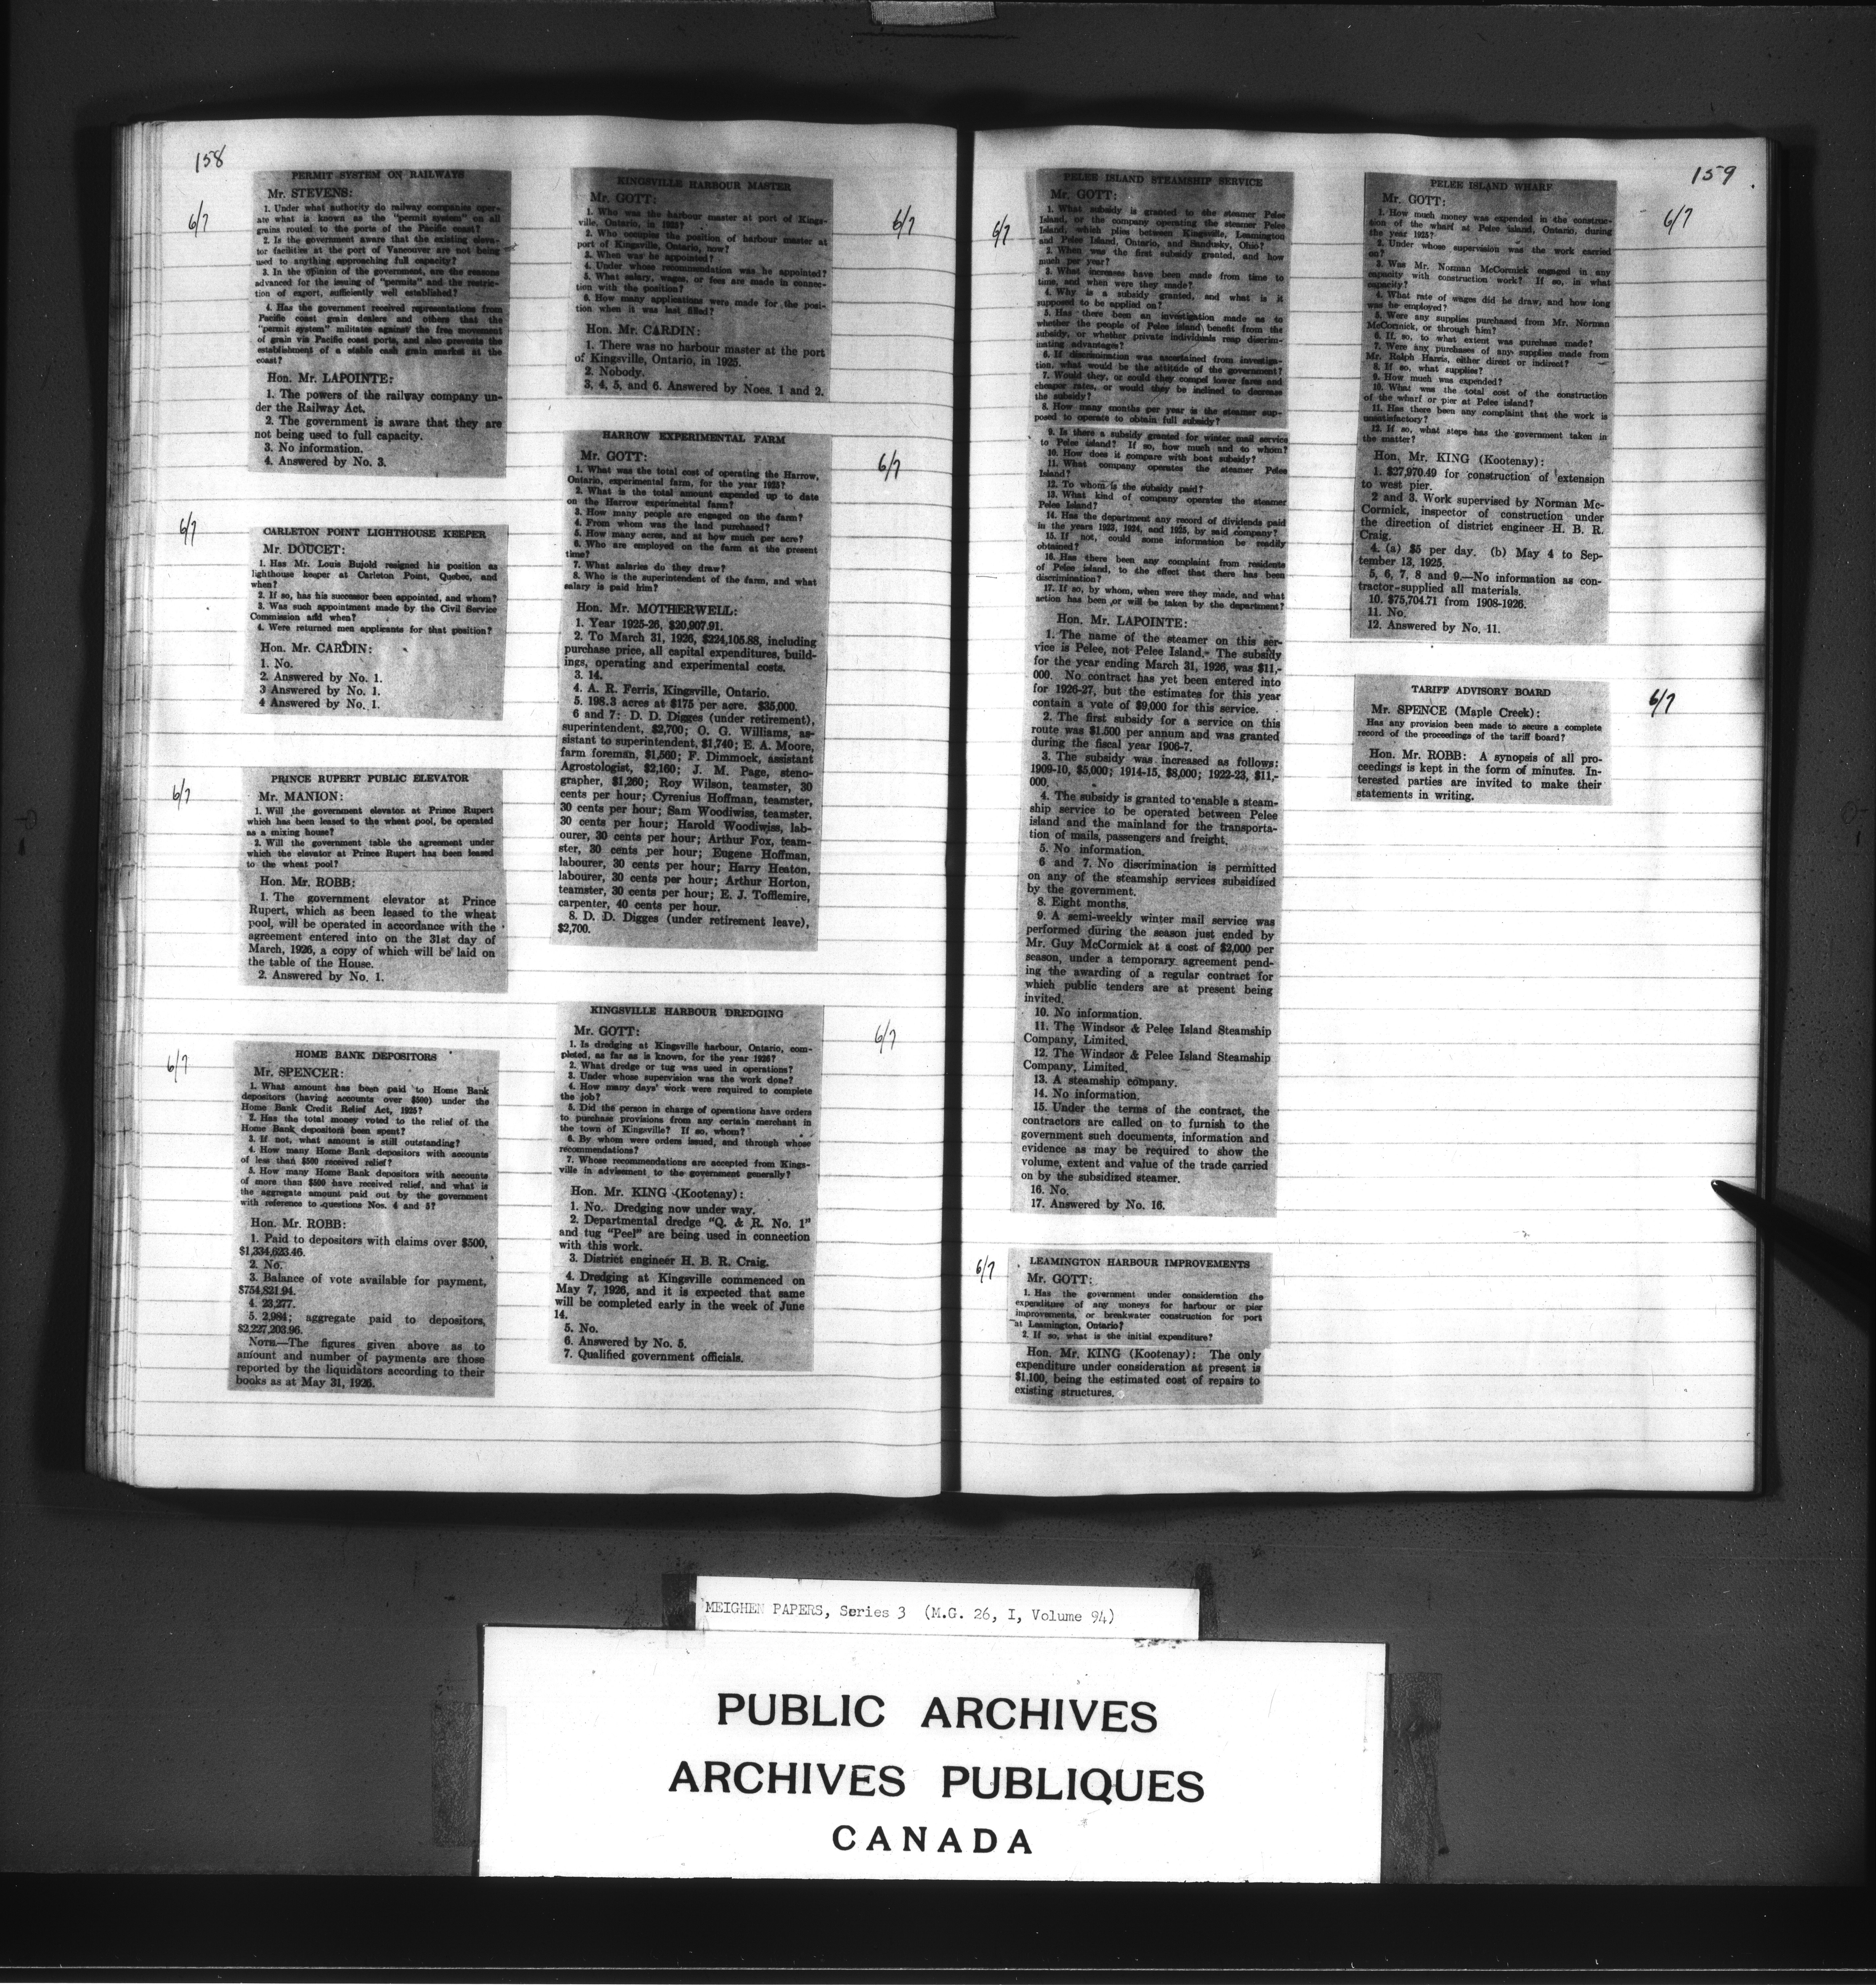 158
6/7
PERMIT SYSTEM ON RAILWAYS
Mr. STEVENS:
1. Under what authority do railway companies oper-
ate what is known as the "permit system" on all
grains routed to the ports of the Pacific coast?
2. Is the government aware that the existing eleva-
tor facilities at the port of Vancouver are not being
used to anything approaching full capacity?
3. In the opinion of the government, are the reasons
advanced for the issuing of "permits" and the restric-
tion of export, sufficiently well established?
4. Has the government received representations from
Pacific coast grain dealers and others that the
"permit system" militates against the free movement
of grain via Pacific coast ports, and also prevents the
establishment of a stable cash grain market at the
coast?
Hon. Mr. LAPOINTE:
1. The powers of the railway company un-
der the Railway Act.
2. The government is aware that they are
not being used to full capacity.
3. No information.
4. Answered by No. 3.
6/7
CARLETON POINT LIGHTHOUSE KEEPER
Mr. DOUCET:
1. Has Mr. Louis Bujold resigned his position as
lighthouse keeper at Carleton Point, Quebec, and
when?
2. If so, has his successor been appointed, and whom?
3. Was such appointment made by the Civil Service
Commission and when?
4. Were returned men applicants for that position?
Hon. Mr. CARDIN:
1. No.
2. Answered by No. 1.
3 Answered by No. 1.
4 Answered by No. 1.
6/7
PRINCE RUPERT PUBLIC ELEVATOR
Mr. MANION:
1. Will the government elevator at Prince Rupert
which has been leased to the wheat pool, be operated
as a mixing house?
2. Will the government table the agreement under
which the elevator at Prince Rupert has been leased
to the wheat pool?
Hon. Mr. ROBB:
1. The government elevator at Prince
Rupert, which as been leased to the wheat
pool, will be operated in accordance with the
agreement entered into on the 31st day of
March, 1926, a copy of which will be laid on
the table of the House.
2. Answered by No. 1.
6/7
HOME BANK DEPOSITORS
Mr. SPENCER:
1. What amount has been paid to Home Bank
depositors (having accounts over $500) under the
Home Bank Credit Relief Act, 1925?
2. Has the total money voted to the relief of the
Home Bank depositors been spent?
3. If not, what amount is still outstanding?
4. How many Home Bank depositors with accounts
of less than $500 received relief?
5. How many Home Bank depositors with accounts
of more than $500 have received relief, and what is
the aggregate amount paid out by the government
with reference to questions Nos. 4 and 5?
Hon. Mr. ROBB:
1. Paid to depositors with claims over $500,
$1,334,623.46.
2. No.
3. Balance of vote available for payment,
$754,821.94.
4. 23,277.
5. 2,984; aggregate paid to depositors,
$2,227,203.96.
NOTE—The figures given above as to
amount and number of payments are those
reported by the liquidators according to their
books as at May 31, 1926.
6/7
KINGSVILLE HARBOUR MASTER
Mr. GOTT:
1. Who was the harbour master at port of Kings-
ville, Ontario, in 1925?
2. Who occupies the position of harbour master at
port of Kingsville, Ontario, now?
3. When was he appointed?
4. Under whose recommendation was he appointed?
5. What salary, wages, or fees are made in connec-
tion with the position?
6. How many applications were made for the posi-
tion when it was last filled?
Hon. Mr. CARDIN:
1. There was no harbour master at the port
of Kingsville, Ontario, in 1925.
2. Nobody.
3, 4, 5, and 6. Answered by Noes. 1 and 2.
6/7
HARROW EXPERIMENTAL FARM
Mr. GOTT:
1. What was the total cost of operating the Harrow,
Ontario, experimental farm, for the year 1925?
2. What is the total amount expended up to date
on the Harrow experimental farm?
3. How many people are engaged on the farm?
4. From whom was the land purchased?
5. How many acres, and at how much per acre?
6. Who are employed on the farm at the present
time?
7. What salaries do they draw?
8. Who is the superintendent of the farm, and what
salary is paid him?
Hon. Mr. MOTHERWELL:
1. Year 1925-26, $20,907.91.
2. To March 31, 1926, $224,105.88, including
purchase price, all capital expenditures, build-
ings, operating and experimental costs.
3. 14.
4. A. R. Ferris, Kingsville, Ontario.
5. 198.3 acres at $175 per acre. $35,000.
6 and 7: D. D. Digges (under retirement),
superintendent, $2,700; O. G. Williams, as-
sistant to superintendent, $1,740; E. A. Moore,
farm foreman, $1,560; F. Dimmock, assistant
Agrostologist, $2,160; J. M. Page, steno-
grapher, $1,260; Roy Wilson, teamster, 30
cents per hour; Cyrenius Hoffman, teamster,
30 cents per hour; Sam Woodiwiss, teamster,
30 cents per hour; Harold Woodiwiss, lab-
ourer, 30 cents per hour; Arthur Fox, team-
ster, 30 cents per hour; Eugene Hoffman,
labourer, 30 cents per hour; Harry Heaton,
labourer, 30 cents per hour; Arthur Horton,
teamster, 30 cents per hour; E. J. Tofflemire,
carpenter, 40 cents per hour.
8. D. D. Digges (under retirement leave),
$2,700.
6/7
KINGSVILLE HARBOUR DREDGING
Mr. GOTT:
1. Is dredging at Kingsville harbour, Ontario, com-
pleted, as far as is known, for the year 1926?
2. What dredge or tug was used in operations?
3. Under whose supervision was the work done?
4. How many days' work were required to complete
the job?
5. Did the person in charge of operations have orders
to purchase provisions from any certain merchant in
the town of Kingsville? If so, whom?
6. By whom were orders issued, and through whose
recommendations?
7. Whose recommendations are accepted from Kings-
ville in advisement to the government generally?
Hon. Mr. KING (Kootenay):
1. No. Dredging now under way.
2. Departmental dredge "Q. & R. No. 1"
and tug "Peel" are being used in connection
with this work.
3. District engineer H. B. R. Craig.
4. Dredging at Kingsville commenced on
May 7, 1926, and it is expected that same
will be completed early in the week of June
14.
5. No.
6. Answered by No. 5.
7. Qualified government officials.
159
6/7
PELEE ISLAND STEAMSHIP SERVICE
Mr. GOTT:
1. What subsidy is granted to the steamer Pelee
Island, or the company operating the steamer Pelee
Island, which plies between Kingsville, Leamington
and Pelee Island, Ontario, and Sandusky, Ohio?
2. When was the first subsidy granted, and how
much per year?
3. What increases have been made from time to
time, and when were they made?
4. Why is a subsidy granted, and what is it
supposed to be applied on?
5. Has there been an investigation made as to
whether the people of Pelee island benefit from the
subsidy, or whether private individuals reap discrim-
inating advantages?
6. If discrimination was ascertained from investiga-
tion, what would be the attitude of the government?
7. Would they, or could they compel lower fares and
cheaper rates, or would they be inclined to decrease
the subsidy?
8. How many months per year is the steamer sup-
posed to operate to obtain full subsidy?
9. Is there a subsidy granted for winter mail service
to Pelee island? If so, how much and to whom?
10. How does it compare with boat subsidy?
11. What company operates the steamer Pelee
Island?
12. To whom is the subsidy paid?
13. What kind of company operates the steamer
Pelee Island?
14. Has the department any record of dividends paid
in the years 1923, 1924, and 1925, by said company?
15. If not, could some information be readily
obtained?
16. Has there been any complaint from residents
of Pelee island, to the effect that there has been
discrimination?
17. If so, by whom, when were they made, and what
action has been or will be taken by the department?
Hon. Mr. LAPOINTE:
1. The name of the steamer on this ser-
vice is Pelee, not Pelee Island. The subsidy
for the year ending March 31, 1926, was $11,-
000. No contract has yet been entered into
for 1926-27, but the estimates for this year
contain a vote of $9,000 for this service.
2. The first subsidy for a service on this
route was $1.500 per annum and was granted
during the fiscal year 1906-7.
3. The subsidy was increased as follows:
1909-10, $5,000; 1914-15, $8,000; 1922-23, $11,-
000.
4. The subsidy is granted to enable a steam-
ship service to be operated between Pelee
island and the mainland for the transporta-
tion of mails, passengers and freight.
5. No information.
6 and 7. No discrimination is permitted
on any of the steamship services subsidized
by the government.
8. Eight months.
9. A semi-weekly winter mail service was
performed during the season just ended by
Mr. Guy McCormick at a cost of $2,000 per
season, under a temporary agreement pend-
ing the awarding of a regular contract for
which public tenders are at present being
invited.
10. No information.
11. The Windsor & Pelee Island Steamship
Company, Limited.
12. The Windsor & Pelee Island Steamship
Company, Limited.
13. A steamship company.
14. No information.
15. Under the terms of the contract, the
contractors are called on to furnish to the
government such documents, information and
evidence as may be required to show the
volume, extent and value of the trade carried
on by the subsidized steamer.
16. No.
17. Answered by No. 16.
6/7
LEAMINGTON HARBOUR IMPROVEMENTS
Mr. GOTT:
1. Has the government under consideration the
expenditure of any moneys for harbour or pier
improvements, or breakwater construction for port
at Leamington, Ontario?
2. If so, what is the initial expenditure?
Hon. Mr. KING (Kootenay): The only
expenditure under consideration at present is
$1,100, being the estimated cost of repairs to
existing structures.
6/7
PELEE ISLAND WHARF
Mr. GOTT:
1. How much money was expended in the construc-
tion of the wharf at Pelee island, Ontario, during
the year 1925?
2. Under whose supervision was the work carried
on?
3. Was Mr. Norman McCormick engaged in any
capacity with construction work? If so, in what
capacity?
4. What rate of wages did he draw, and how long
was he employed?
5. Were any supplies purchased from Mr. Norman
McCormick, or through him?
6. If so, to what extent was purchase made?
7. Were any purchases of any supplies made from
Mr. Ralph Harris, either direct or indirect?
8. If so, what supplies?
9. How much was expended?
10. What was the total cost of the construction
of the wharf or pier at Pelee island?
11. Has there been any complaint that the work is
unsatisfactory?
12. If so, what steps has the government taken in
the matter?
Hon. Mr. KING (Kootenay):
1. $27,970.49 for construction of extension
to west pier.
2 and 3. Work supervised by Norman Mc-
Cormick, inspector of construction under
the direction of district engineer H. B. R.
Craig.
4. (a) $5 per day. (b) May 4 to Sep-
tember 13, 1925.
5, 6, 7, 8 and 9.—No information as con-
tractor supplied all materials.
10. $75,704.71 from 1908-1926.
11. No.
12. Answered by No. 11.
6/7
TARIFF ADVISORY BOARD
Mr. SPENCE (Maple Creek):
Has any provision been made to secure a complete
record of the proceedings of the tariff board?
Hon. Mr. ROBB: A synopsis of all pro-
ceedings is kept in the form of minutes. In-
terested parties are invited to make their
statements in writing.
MEIGHEN PAPERS, Series 3 (M.G. 26, I, Volume 94)
PUBLIC ARCHIVES
ARCHIVES PUBLIQUES
CANADA